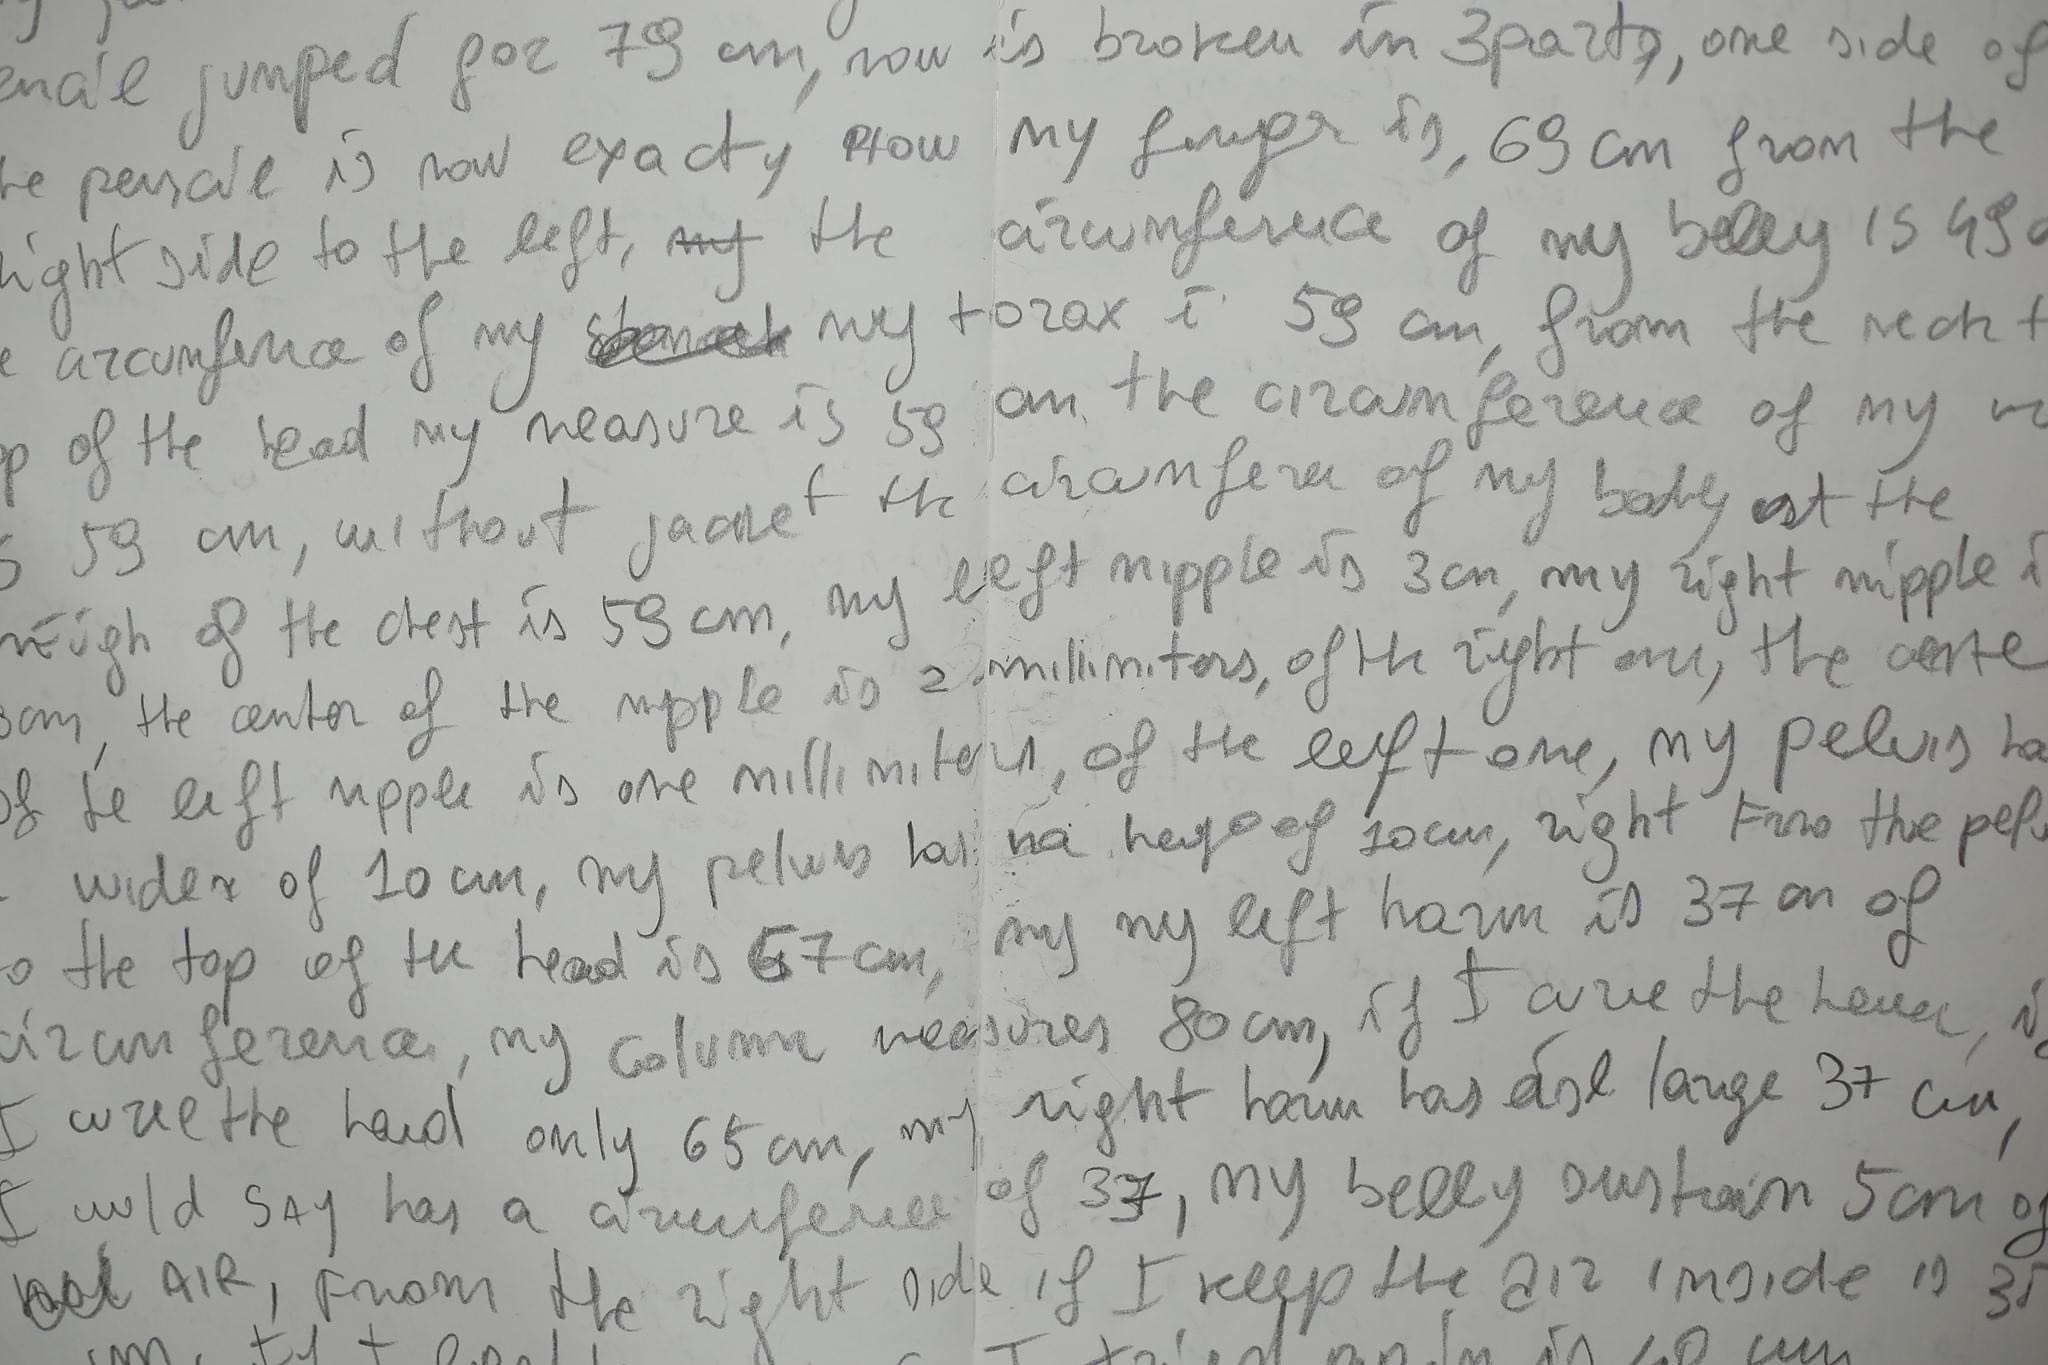 jumped for 79 cm, now is broken in 3 parts, one side of
he penscile is now exacty How my finger is, 69 cm from the
right side to the left, my the circumference of my belly is 49
e circumference of my my torax i 59 cm, from the neck t
op of the head my measure is 59 cm the circumference of my
59 cm, without jacket the circumfere of my body at the
of the chest is 59 cm, my left nipple is 3 cm, my right nipple i
3cm, the center of the nipple is 2 millimiters, of the right one, the cente
of te left nipple is one millimiters, of the left one, my pelvis ha
of 10 cm, my pelvis has of 10 cm, right From the pelv
o the top of the head is 67 cm, my my left harm is 37 cm of
circumference, my column measures 80 cm, if I curve the if
I curve the head only 65 cm, my right harm has large 37 cm,
I would SAY has a circumference of 37, my belly sustain 5 cm of
AIR, From the right side if I keep the air inside is 35